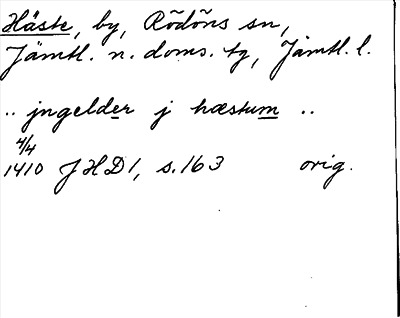 Häste, by, Rödöns sn,
Jämtl. n. doms. tg, Jämtl. l.
.. jngelder j hæstum ..
4/4
1410 JHD 1, s. 163 orig.